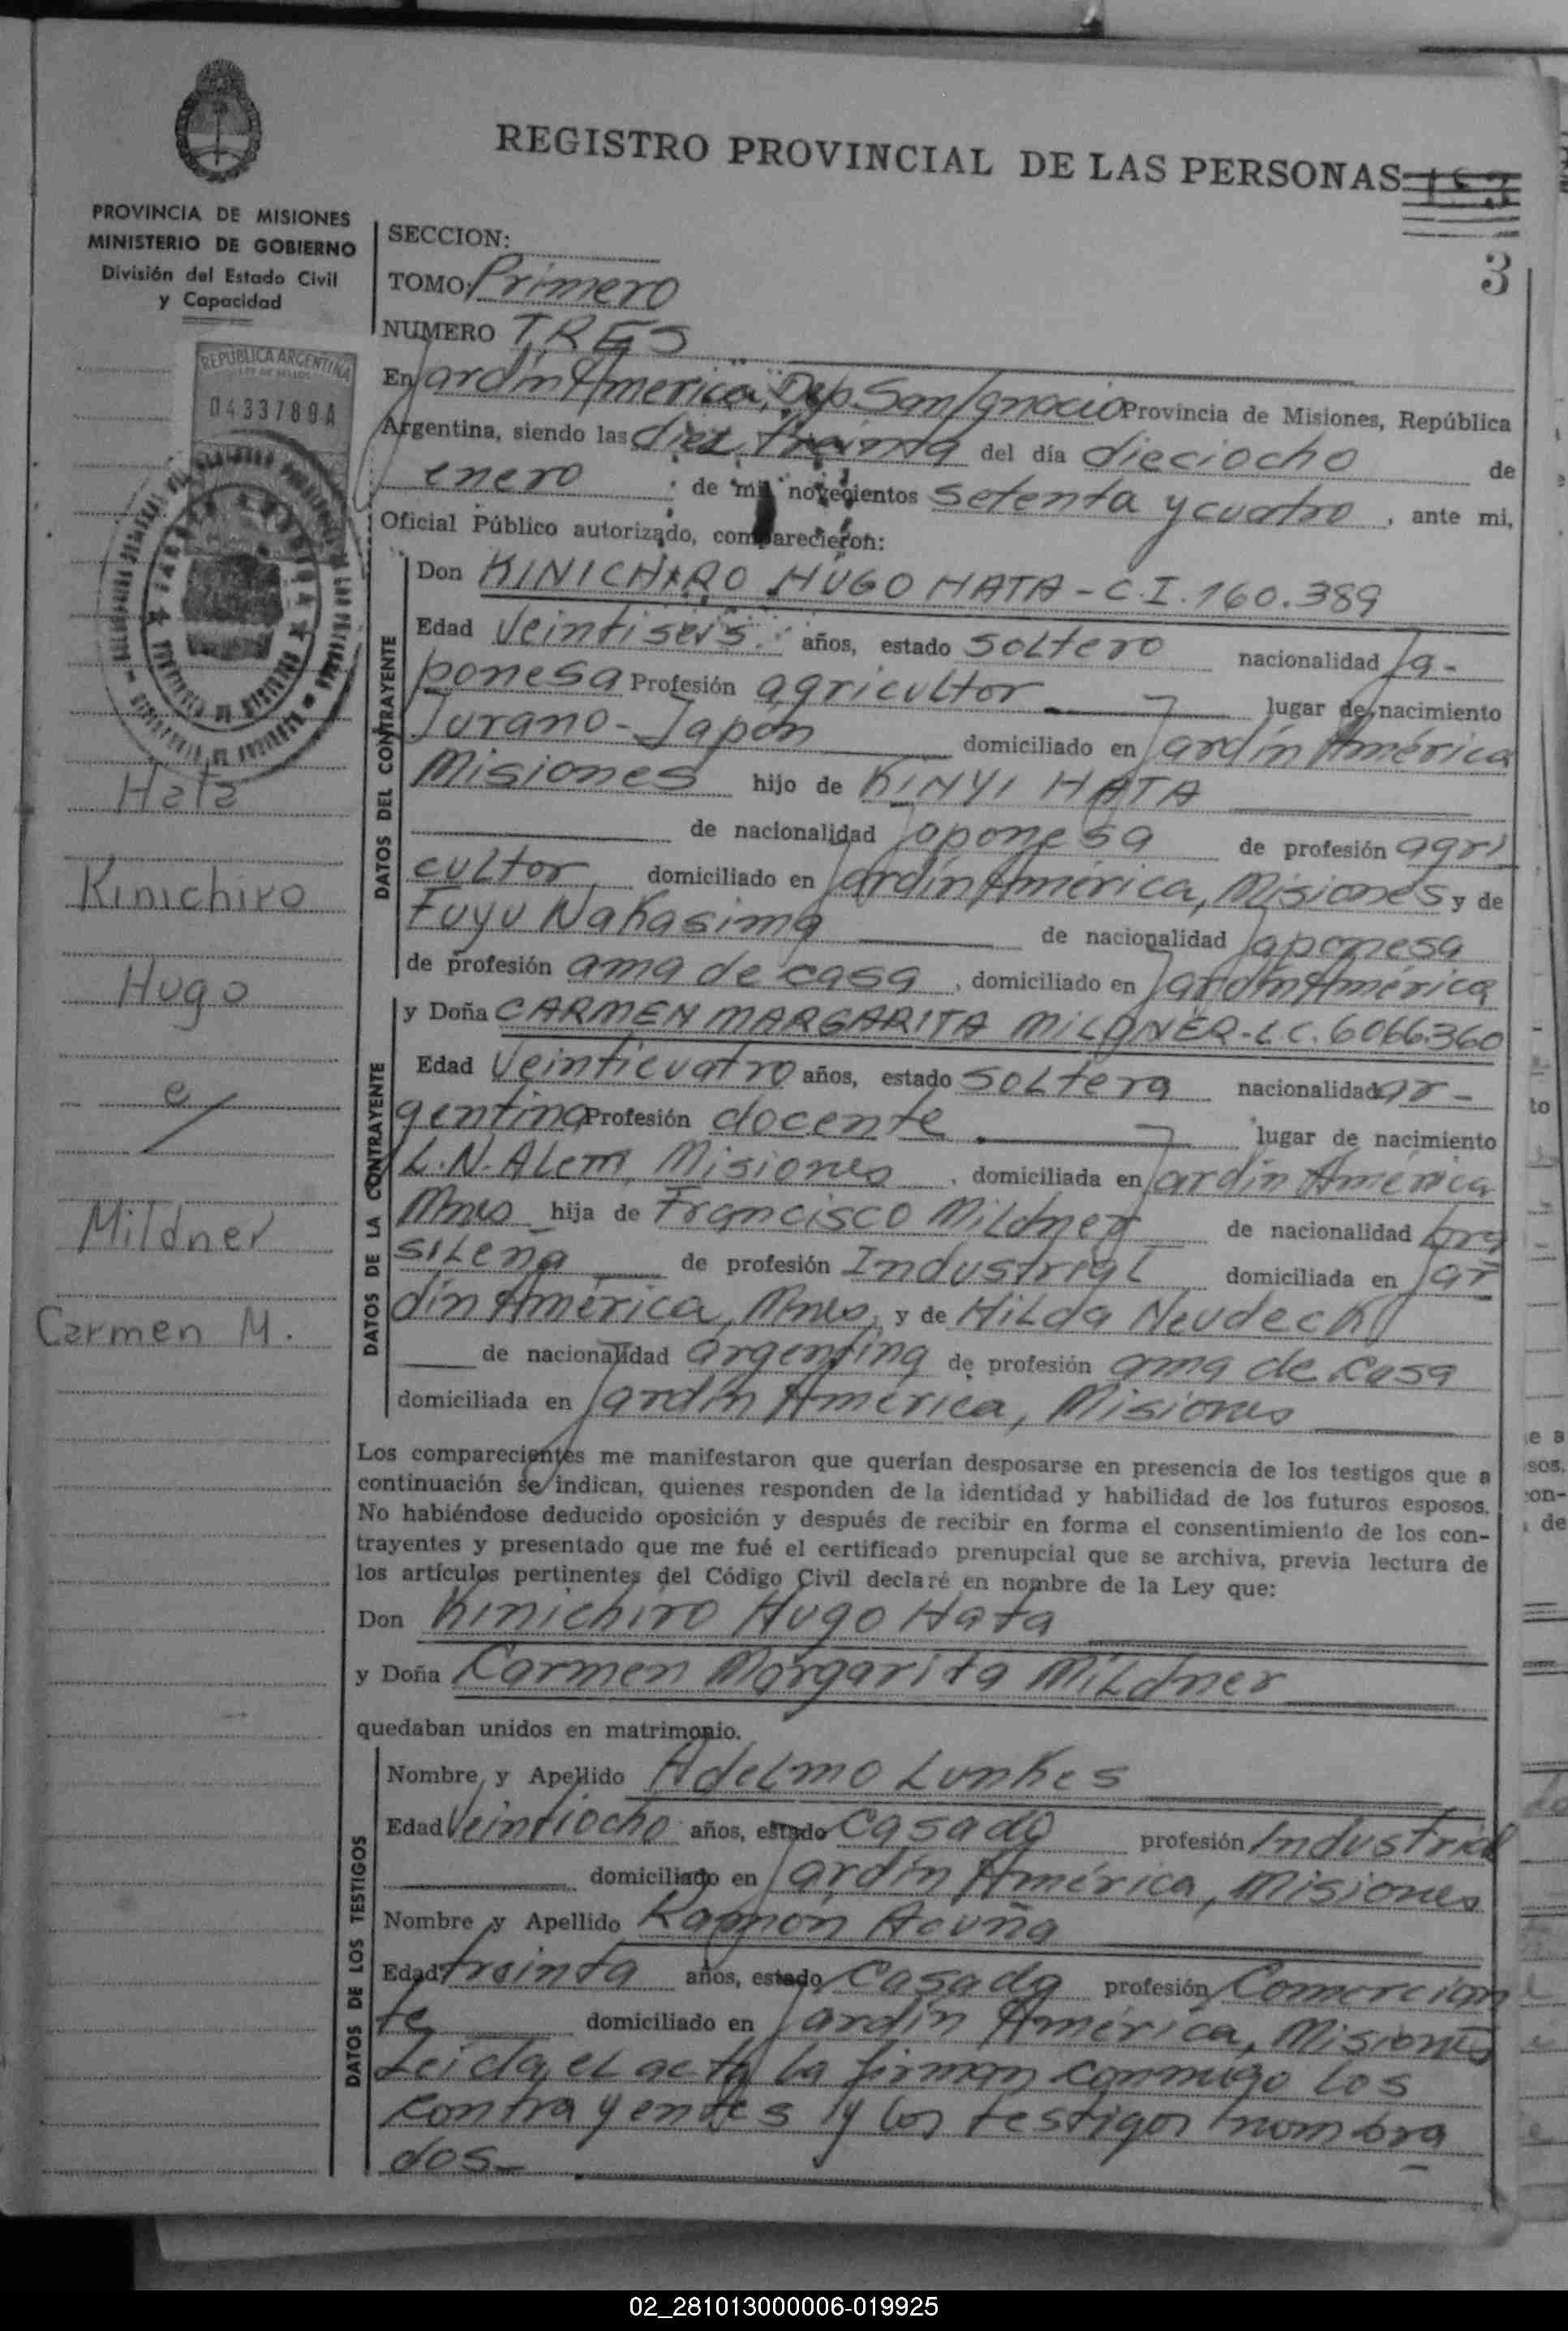 REGISTRO PROVINCIAL DE LAS PERSONAS
3
PROVINCIA DE MISIONES
MINISTERIO DE GOBIERNO
División del Estado Civil
y Capacidad
SECCION:
TOMO: Primero
NUMERO TRES
REPUBLICA ARGENTINA
LEY DE SELLOS
04337894
En Jardín América, Dep San Ignacio Provincia de Misiones, República
Argentina, siendo las diez treinta del día dieciocho de
enero de mil novecientos setenta y cuatro, ante mi,
Oficial Público autorizado, comparecieron:
DATOS DEL CONTRAYENTE
Don KINICHIRO HUGO HATA - C.I. 160.389
Edad Veintiseis años, estado soltero nacionalidad Ja-
ponesa Profesión agricultor lugar de nacimiento
Jurano - Japón domiciliado en Jardín América
Misiones hijo de KINYI HATA
de nacionalidad Japonesa de profesión agri
cultor, domiciliado en Jardín América, Misiones y de
Fuyu Nakasima de nacionalidad Japonesa
de profesión ama de casa, domiciliado en Jardín América
DATOS DE LA CONTRAYENTE
y Doña CARMEN MARGARITA MILDNER - L.C. 6066360
Edad Veinticuatro años, estado soltera nacionalidad ar-
gentina Profesión docente lugar de nacimiento
L.N. Alem, Misiones, domiciliada en Jardín América
Mnes hija de Francisco Mildner de nacionalidad bra
sileña de profesión Industrial domiciliada en Jar
dín América, Mnes, y de Hilda Neudeck
de nacionalidad argentina de profesión ama de casa
domiciliada en Jardín América, Misiones
Los comparecientes me manifestaron que querían desposarse en presencia de los testigos que a
continuación se indican, quienes responden de la identidad y habilidad de los futuros esposos.
No habiéndose deducido oposición y después de recibir en forma el consentimiento de los con-
trayentes y presentado que me fué el certificado prenupcial que se archiva, previa lectura de
los artículos pertinentes del Código Civil declaré en nombre de la Ley que:
Don Kinichiro Hugo Hata
y Doña Carmen Margarita Mildner
quedaban unidos en matrimonio.
DATOS DE LOS TESTIGOS
Nombre y Apellido Adelmo Lunkes
Edad Veintiocho años, estado casado profesión Industrial
domiciliado en Jardín América, Misiones
Nombre y Apellido Ramón Acuña
Edad treinta años, estado casado profesión Comercian
te domiciliado en Jardín América, Misiones
Leída el acta la firman conmigo los
contrayentes y los testigos nombra
dos-
Hata
Kinichiro
Hugo
c/
Mildner
Carmen M.
02_281013000006-019925